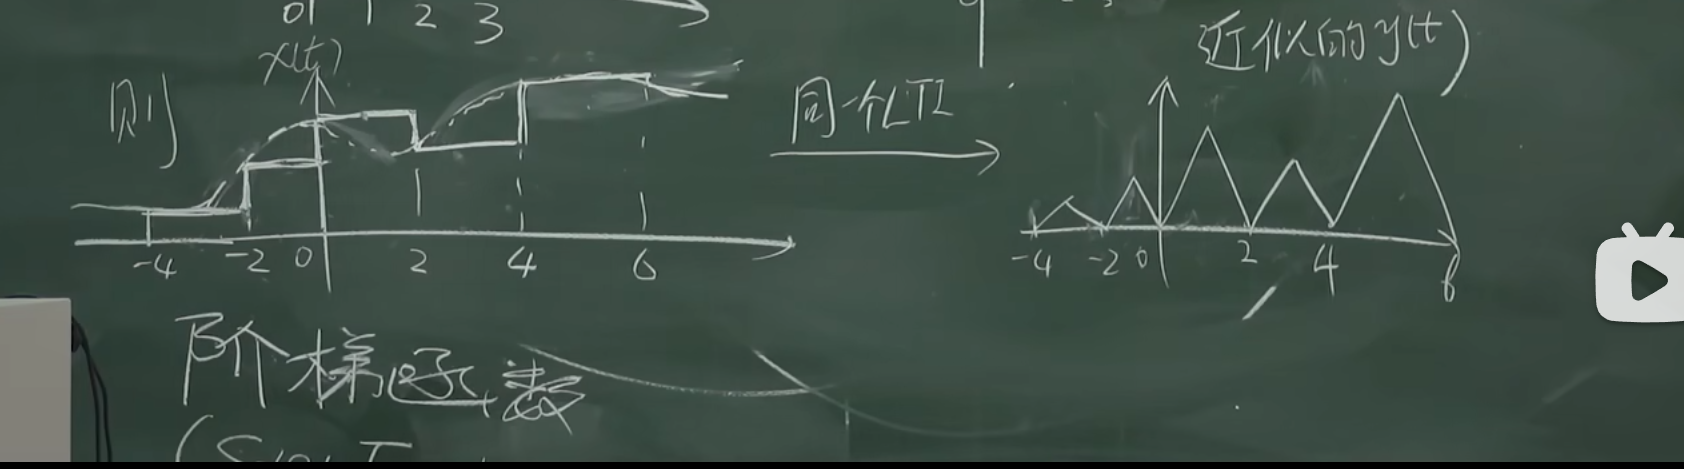 0 1 2 3
x(t)
则
-4 -2 0 2 4 6
同一个LTI
近似的y(t)
-4 -2 0 2 4 6
阶梯函数